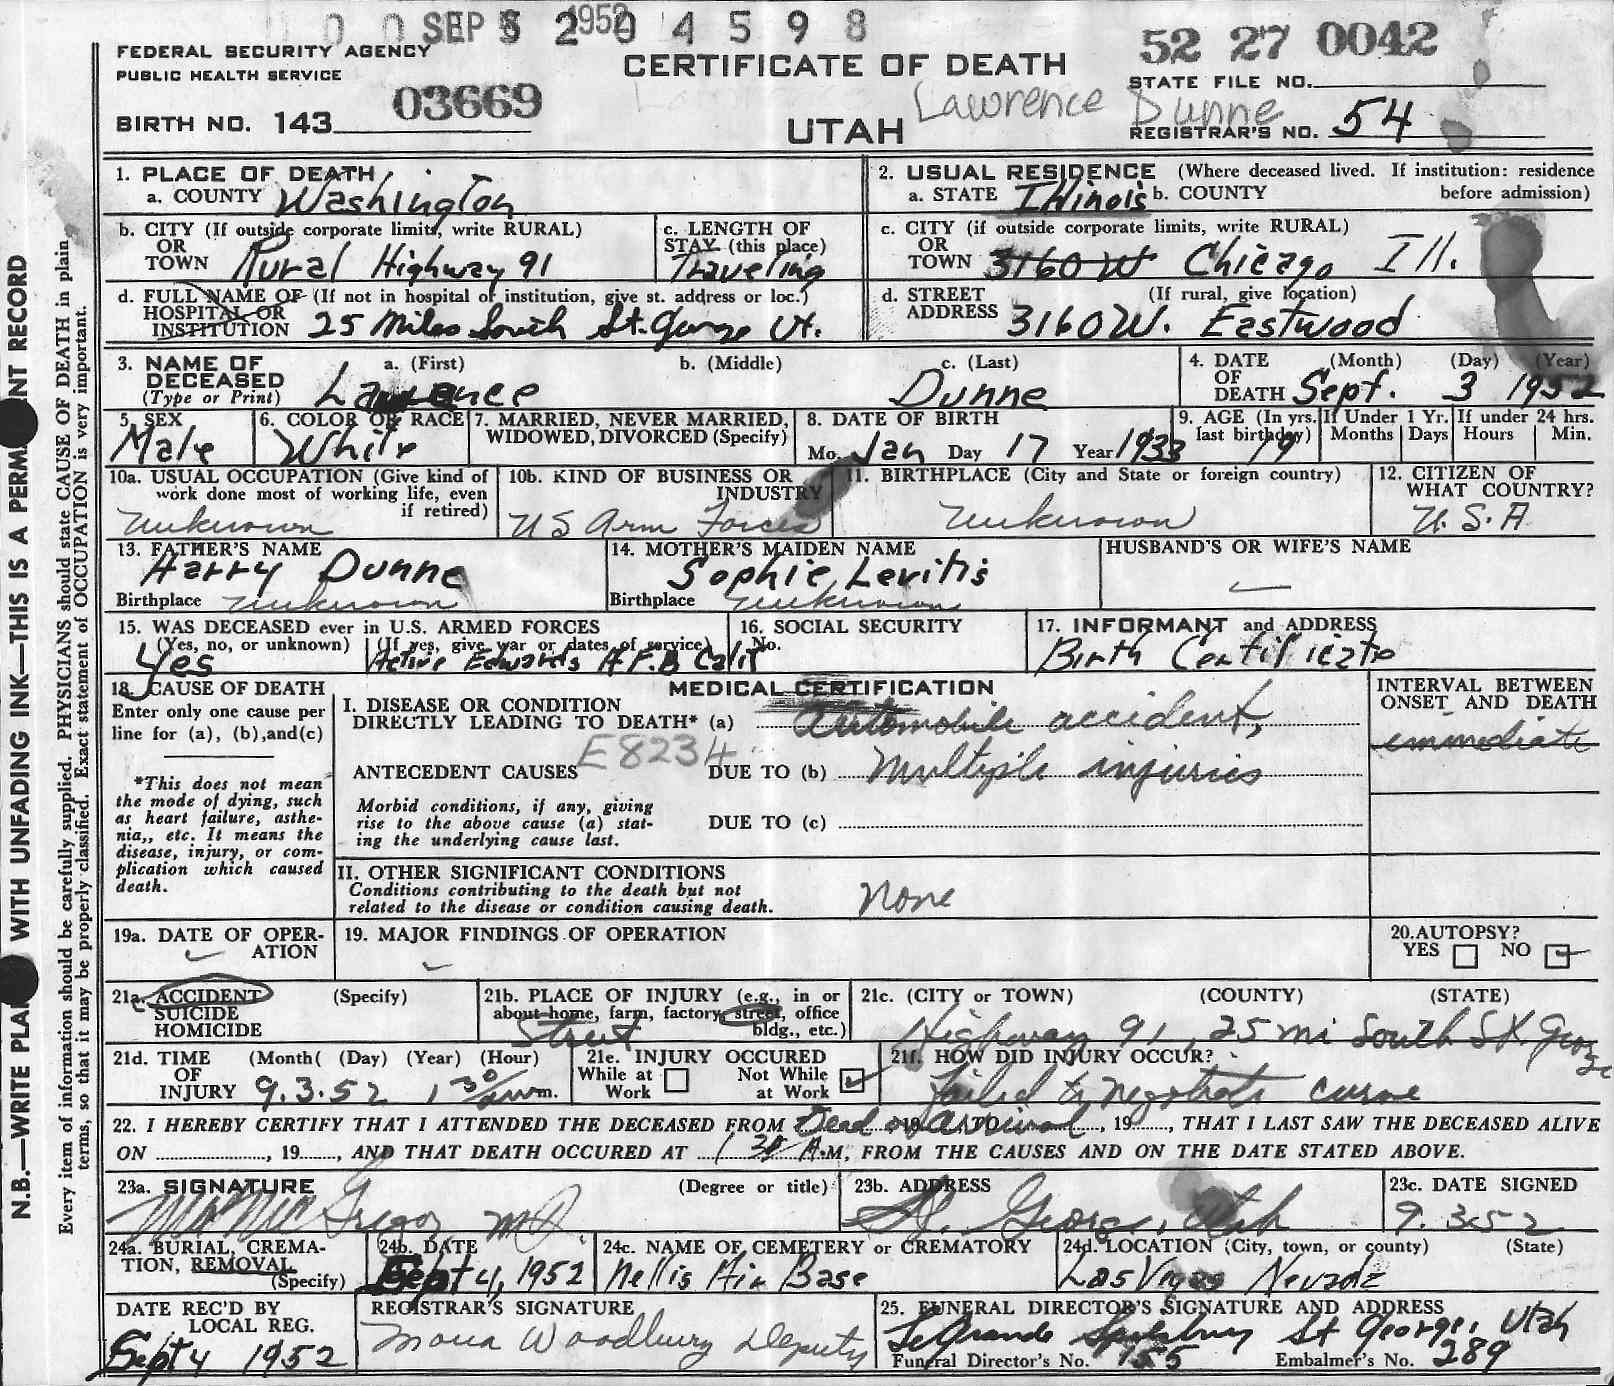 SEP 5 1952 0 4 5 9 8
52 27 0042
FEDERAL SECURITY AGENCY
PUBLIC HEALTH SERVICE
CERTIFICATE OF DEATH
STATE FILE NO.
BIRTH NO. 143 03669
UTAH
Lawrence Dunne
REGISTRAR'S NO. 54
1. PLACE OF DEATH
a. COUNTY Washington
2. USUAL RESIDENCE (Where deceased lived. If institution: residence before admission)
a. STATE Illinois b. COUNTY
b. CITY (If outside corporate limits, write RURAL)
OR
TOWN Rural Highway 91
c. LENGTH OF
STAY (this place)
Traveling
c. CITY (if outside corporate limits, write RURAL)
OR
TOWN 3160 W Chicago Ill.
d. FULL NAME OF (If not in hospital or institution, give st. address or loc.)
HOSPITAL OR
INSTITUTION 25 Miles South St. George Ut.
d. STREET (If rural, give location)
ADDRESS 3160 W. Eastwood
3. NAME OF DECEASED (Type or Print)
a. (First) b. (Middle) c. (Last)
Lawrence Dunne
4. DATE OF DEATH (Month) (Day) (Year)
Sept. 3 1952
5. SEX
Male
6. COLOR OR RACE
White
7. MARRIED, NEVER MARRIED,
WIDOWED, DIVORCED (Specify)
8. DATE OF BIRTH
Mo. Jan Day 17 Year 1933
9. AGE (In yrs. last birthday) 19
If Under 1 Yr. Months Days
If under 24 hrs. Hours Min.
10a. USUAL OCCUPATION (Give kind of
work done most of working life, even
if retired)
Unknown
10b. KIND OF BUSINESS OR
INDUSTRY
US Arm Forces
11. BIRTHPLACE (City and State or foreign country)
Unknown
12. CITIZEN OF
WHAT COUNTRY?
U.S.A
13. FATHER'S NAME
Harry Dunne
Birthplace Unknown
14. MOTHER'S MAIDEN NAME
Sophie Levitis
Birthplace Unknown
HUSBAND'S OR WIFE'S NAME
15. WAS DECEASED ever in U.S. ARMED FORCES
(Yes, no, or unknown) (If yes, give war or dates of service)
Yes Active Edwards A.F.B Calif
16. SOCIAL SECURITY
No.
17. INFORMANT and ADDRESS
Birth Certificate
18. CAUSE OF DEATH
Enter only one cause per
line for (a), (b), and (c)
*This does not mean
the mode of dying, such
as heart failure, asthe-
nia,, etc. It means the
disease, injury, or com-
plication which caused
death.
MEDICAL CERTIFICATION
I. DISEASE OR CONDITION
DIRECTLY LEADING TO DEATH* (a) Automobile accident,
E8234
ANTECEDENT CAUSES DUE TO (b) Multiple injuries
Morbid conditions, if any, giving
rise to the above cause (a) stat-
ing the underlying cause last.
DUE TO (c)
INTERVAL BETWEEN
ONSET AND DEATH
immediate
II. OTHER SIGNIFICANT CONDITIONS
Conditions contributing to the death but not
related to the disease or condition causing death.
None
19a. DATE OF OPER-
ATION
19. MAJOR FINDINGS OF OPERATION
20. AUTOPSY?
YES NO
21a. ACCIDENT (Specify)
SUICIDE
HOMICIDE
21b. PLACE OF INJURY (e.g., in or
about home, farm, factory, street, office
bldg., etc.)
Street
21c. (CITY or TOWN) (COUNTY) (STATE)
Highway 91, 25 mi South St. George
21d. TIME OF INJURY (Month( (Day) (Year) (Hour)
9.3.52 1 30 Am.
21e. INJURY OCCURED
While at Work Not While at Work
21f. HOW DID INJURY OCCUR?
failed to negotiate curve
22. I HEREBY CERTIFY THAT I ATTENDED THE DECEASED FROM Dead on Arrival, 19, THAT I LAST SAW THE DECEASED ALIVE
ON, 19, AND THAT DEATH OCCURED AT 1 30 A.M, FROM THE CAUSES AND ON THE DATE STATED ABOVE.
23a. SIGNATURE (Degree or title)
McGregor MD.
23b. ADDRESS
St. George, Utah
23c. DATE SIGNED
9.3.52
24a. BURIAL, CREMA-
TION, REMOVAL
(Specify)
24b. DATE
Sept 4, 1952
24c. NAME OF CEMETERY or CREMATORY
Nellis Air Base
24d. LOCATION (City, town, or county) (State)
Las Vegas Nevada
DATE REC'D BY
LOCAL REG.
Sept 4 1952
REGISTRAR'S SIGNATURE
Mona Woodbury Deputy
25. FUNERAL DIRECTOR'S SIGNATURE AND ADDRESS
LeGrande Spilsbury St George, Utah
Funeral Director's No. 155 Embalmer's No. 289
N.B.—WRITE PLAI WITH UNFADING INK—THIS IS A PERMA NT RECORD
Every item of information should be carefully supplied. PHYSICIANS should state CAUSE OF DEATH in plain
terms, so that it may be properly classified. Exact statement of OCCUPATION is very important.